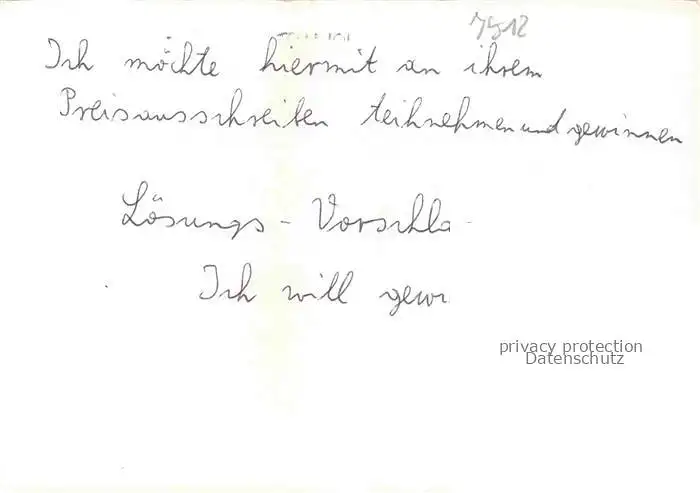 Ich möchte hiermit an ihrem
Preisausschreiben teihnehmen und gewinnen
Lösungs - Vorschla
Ich will gewi
privacy protection
Datenschutz